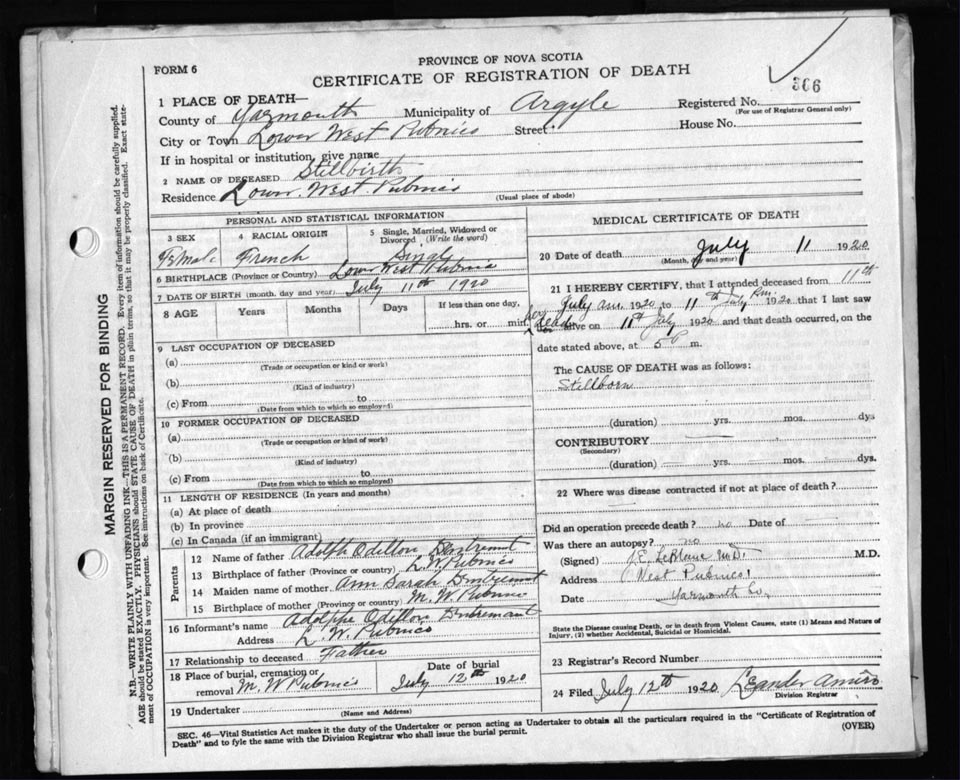 PROVINCE OF NOVA SCOTIA
FORM 6
CERTIFICATE OF REGISTRATION OF DEATH
366
1 PLACE OF DEATH—
County of Yarmouth Municipality of Argyle Registered No.
(For use of Registrar General only)
City or Town Lower West Pubnico Street House No.
If in hospital or institution, give name
2 NAME OF DECEASED Stillbirth
Residence Lower West Pubnico
(Usual place of abode)
PERSONAL AND STATISTICAL INFORMATION
3 SEX 4 RACIAL ORIGIN 5 Single, Married, Widowed or Divorced (Write the word)
Female French Single
6 BIRTHPLACE (Province or Country) Lower West Pubnico
7 DATE OF BIRTH (month, day and year) July 11th 1920
8 AGE Years Months Days If less than one day,
hrs. or min.
9 LAST OCCUPATION OF DECEASED
(a)
(Trade or occupation or kind or work)
(b)
(Kind of industry)
(c) From to
(Date from which to which so employed)
10 FORMER OCCUPATION OF DECEASED
(a)
(Trade or occupation or kind of work)
(b)
(Kind of industry)
(c) From to
(Date from which to which so employed)
11 LENGTH OF RESIDENCE (In years and months)
(a) At place of death
(b) In province
(c) In Canada (if an immigrant)
Parents
12 Name of father Adolph Odillon Dentremont
13 Birthplace of father (Province or country) L. W. Pubnico
14 Maiden name of mother Ann Sarah Dentremont
15 Birthplace of mother (Province or country) M. W. Pubnico
16 Informant's name Adolphe Odillon Dentremont
Address L. W. Pubnico
17 Relationship to deceased Father
18 Place of burial, cremation or removal M. W Pubnico Date of burial July 12th 1920
19 Undertaker
(Name and Address)
MEDICAL CERTIFICATE OF DEATH
20 Date of death July 11 1920
(Month, day and year)
21 I HEREBY CERTIFY, that I attended deceased from 11th
July am. 1920 to 11th July P.m. 1920 that I last saw
her dead alive on 11th July 1920 and that death occurred, on the
date stated above, at 5 P m.
The CAUSE OF DEATH was as follows:
Stillborn
(duration) yrs. mos. dys
CONTRIBUTORY
(Secondary)
(duration) yrs. mos. dys.
22 Where was disease contracted if not at place of death?
Did an operation precede death? no Date of
Was there an autopsy? no
(Signed) J. E. LeBlanc M.D. M.D.
Address West Pubnico
Date Yarmouth Co.
State the Disease causing Death, or in death from Violent Causes, state (1) Means and Nature of
Injury, (2) whether Accidental, Suicidal or Homicidal.
23 Registrar's Record Number
24 Filed July 12th 1920 Leander Amiro
Division Registrar
SEC. 46—Vital Statistics Act makes it the duty of the Undertaker or person acting as Undertaker to obtain all the particulars required in the "Certificate of Registration of
Death" and to fyle the same with the Division Registrar who shall issue the burial permit.
(OVER)
MARGIN RESERVED FOR BINDING
N.B.—WRITE PLAINLY WITH UNFADING INK—THIS IS A PERMANENT RECORD. Every item of information should be carefully supplied.
AGE should be stated EXACTLY. PHYSICIANS should STATE CAUSE OF DEATH in plain terms, so that it may be properly classified. Exact state-
ment of OCCUPATION is very important. See instructions on back of Certificate.